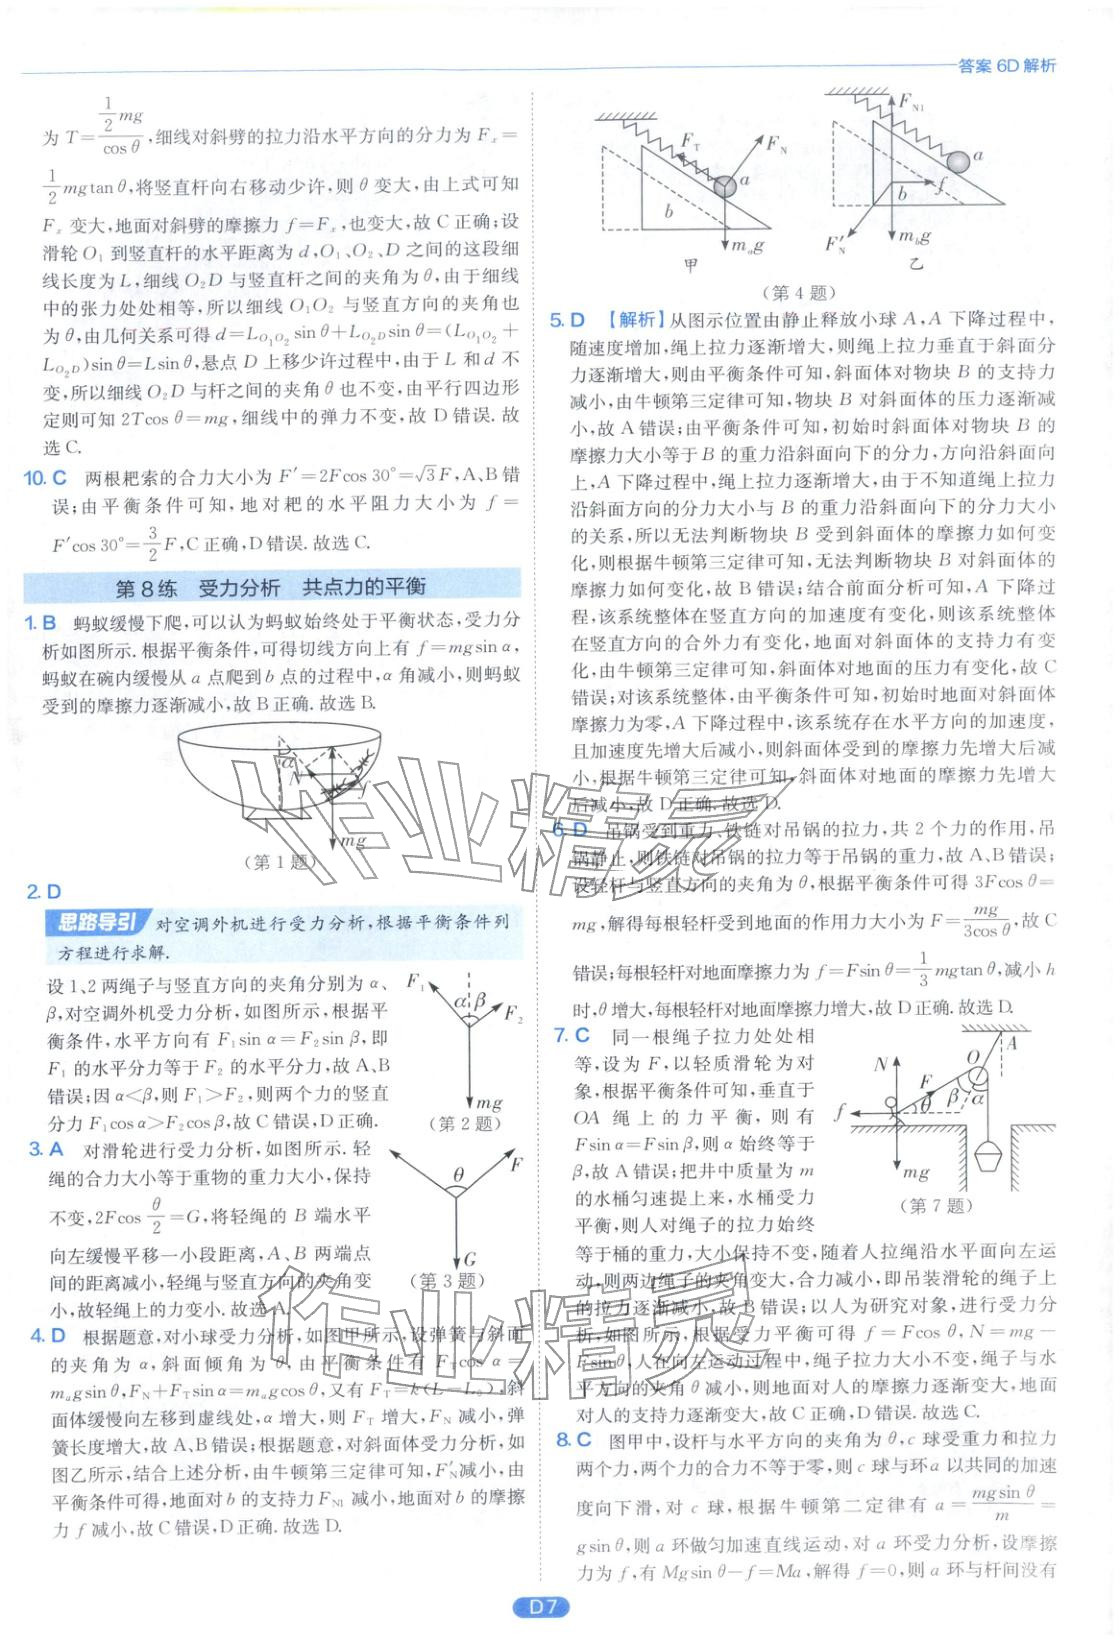 答案 6D 解析
为 T=\frac{\frac{1}{2}mg}{cos θ},细线对斜劈的拉力沿水平方向的分力为 Fₓ=
\frac{1}{2}mgtan θ,将竖直杆向右移动少许,则 θ 变大,由上式可知
Fₓ 变大,地面对斜劈的摩擦力 f=Fₓ,也变大,故 C 正确;设
滑轮 O₁ 到竖直杆的水平距离为 d,O₁、O₂、D 之间的这段细
线长度为 L,细线 O₂D 与竖直杆之间的夹角为 θ,由于细线
中的张力处处相等,所以细线 O₁O₂ 与竖直方向的夹角也
为 θ,由几何关系可得 d=L_{O₁O₂}sin θ+L_{O₂D}sin θ=(L_{O₁O₂}+
L_{O₂D})sin θ=Lsin θ,悬点 D 上移少许过程中,由于 L 和 d 不
变,所以细线 O₂D 与杆之间的夹角 θ 也不变,由平行四边形
定则可知 2Tcos θ=mg,细线中的弹力不变,故 D 错误. 故
选 C.
10. C 两根耙索的合力大小为 F′=2Fcos 30°=√3F,A、B 错
误;由平衡条件可知,地对耙的水平阻力大小为 f=
F′cos 30°=\frac{3}{2}F,C 正确,D 错误. 故选 C.
第 8 练 受力分析 共点力的平衡
1. B 蚂蚁缓慢下爬,可以认为蚂蚁始终处于平衡状态,受力分
析如图所示. 根据平衡条件,可得切线方向上有 f=mgsin α,
蚂蚁在碗内缓慢从 a 点爬到 b 点的过程中,α 角减小,则蚂蚁
受到的摩擦力逐渐减小,故 B 正确. 故选 B.
α
N
f
mg
(第 1 题)
2. D
思路导引 对空调外机进行受力分析,根据平衡条件列
方程进行求解.
设 1、2 两绳子与竖直方向的夹角分别为 α、
β,对空调外机受力分析,如图所示,根据平
衡条件,水平方向有 F₁sin α=F₂sin β,即
F₁ 的水平分力等于 F₂ 的水平分力,故 A、B
错误;因 α<β,则 F₁>F₂,则两个力的竖直
分力 F₁cos α>F₂cos β,故 C 错误,D 正确.
F₁
α β
F₂
mg
(第 2 题)
3. A 对滑轮进行受力分析,如图所示. 轻
绳的合力大小等于重物的重力大小,保持
不变,2Fcos \frac{θ}{2}=G,将轻绳的 B 端水平
向左缓慢平移一小段距离,A、B 两端点
间的距离减小,轻绳与竖直方向的夹角变
小,故轻绳上的力变小. 故选 A.
θ
F
G
(第 3 题)
4. D 根据题意,对小球受力分析,如图甲所示,设弹簧与斜面
的夹角为 α,斜面倾角为 θ,由平衡条件有 F_Tcos α=
mₐgsin θ,F_N+F_Tsin α=mₐgcos θ,又有 F_T=k(L−L₀),斜
面体缓慢向左移到虚线处,α 增大,则 F_T 增大,F_N 减小,弹
簧长度增大,故 A、B 错误;根据题意,对斜面体受力分析,如
图乙所示,结合上述分析,由牛顿第三定律可知,F′_N 减小,由
平衡条件可得,地面对 b 的支持力 F_{N1} 减小,地面对 b 的摩擦
力 f 减小,故 C 错误,D 正确. 故选 D.
F_T
F_N
a
b
mₐg
甲
F_{N1}
a
f
b
F′_N
m_bg
乙
(第 4 题)
5. D 【解析】从图示位置由静止释放小球 A,A 下降过程中,
随速度增加,绳上拉力逐渐增大,则绳上拉力垂直于斜面分
力逐渐增大,则由平衡条件可知,斜面体对物块 B 的支持力
减小,由牛顿第三定律可知,物块 B 对斜面体的压力逐渐减
小,故 A 错误;由平衡条件可知,初始时斜面体对物块 B 的
摩擦力大小等于 B 的重力沿斜面向下的分力,方向沿斜面向
上,A 下降过程中,绳上拉力逐渐增大,由于不知道绳上拉力
沿斜面方向的分力大小与 B 的重力沿斜面向下的分力大小
的关系,所以无法判断物块 B 受到斜面体的摩擦力如何变
化,则根据牛顿第三定律可知,无法判断物块 B 对斜面体的
摩擦力如何变化,故 B 错误;结合前面分析可知,A 下降过
程,该系统整体在竖直方向的加速度有变化,则该系统整体
在竖直方向的合外力有变化,地面对斜面体的支持力有变
化,由牛顿第三定律可知,斜面体对地面的压力有变化,故 C
错误;对该系统整体,由平衡条件可知,初始时地面对斜面体
摩擦力为零,A 下降过程中,该系统存在水平方向的加速度,
且加速度先增大后减小,则斜面体受到的摩擦力先增大后减
小,根据牛顿第三定律可知,斜面体对地面的摩擦力先增大
后减小,故 D 正确. 故选 D.
6. D 吊锅受到重力、铁链对吊锅的拉力,共 2 个力的作用,吊
锅静止,则铁链对吊锅的拉力等于吊锅的重力,故 A、B 错误;
设轻杆与竖直方向的夹角为 θ,根据平衡条件可得 3Fcos θ=
mg,解得每根轻杆受到地面的作用力大小为 F=\frac{mg}{3cos θ},故 C
错误;每根轻杆对地面摩擦力为 f=Fsin θ=\frac{1}{3}mgtan θ,减小 h
时,θ 增大,每根轻杆对地面摩擦力增大,故 D 正确. 故选 D.
7. C 同一根绳子拉力处处相
等,设为 F,以轻质滑轮为对
象,根据平衡条件可知,垂直于
OA 绳上的力平衡,则有
Fsin α=Fsin β,则 α 始终等于
β,故 A 错误;把井中质量为 m
的水桶匀速提上来,水桶受力
平衡,则人对绳子的拉力始终
等于桶的重力,大小保持不变,随着人拉绳沿水平面向左运
动,则两边绳子的夹角变大,合力减小,即吊装滑轮的绳子上
的拉力逐渐减小,故 B 错误;以人为研究对象,进行受力分
析,如图所示,根据受力平衡可得 f=Fcos θ,N=mg−
Fsin θ,人在向左运动过程中,绳子拉力大小不变,绳子与水
平方向的夹角 θ 减小,则地面对人的摩擦力逐渐变大,地面
对人的支持力逐渐变大,故 C 正确,D 错误. 故选 C.
A
O
N
F
β α
θ
f
mg
(第 7 题)
8. C 图甲中,设杆与水平方向的夹角为 θ,c 球受重力和拉力
两个力,两个力的合力不等于零,则 c 球与环 a 以共同的加速
度向下滑,对 c 球,根据牛顿第二定律有 a=\frac{mgsin θ}{m}=
gsin θ,则 a 环做匀加速直线运动,对 a 环受力分析,设摩擦
力为 f,有 Mgsin θ−f=Ma,解得 f=0,则 a 环与杆间没有
D 7
作业精灵
作业精灵